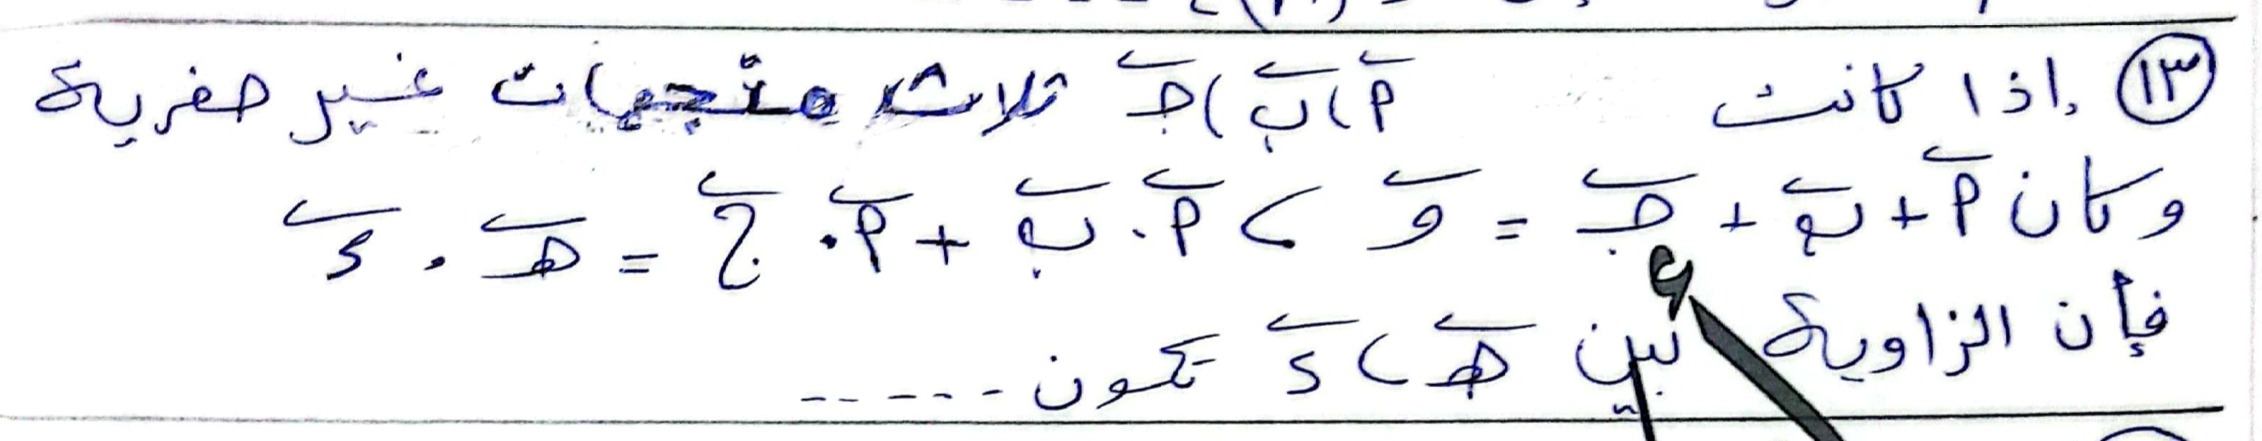 ١٣ إذا كانت أ ، ب ، جـ ثلاث متجهات غير صفرية
وكان أ + ب + جـ = و ، أ . ب + أ . جـ = هـ . د
فإن الزاوية بين هـ ، د تكون ------